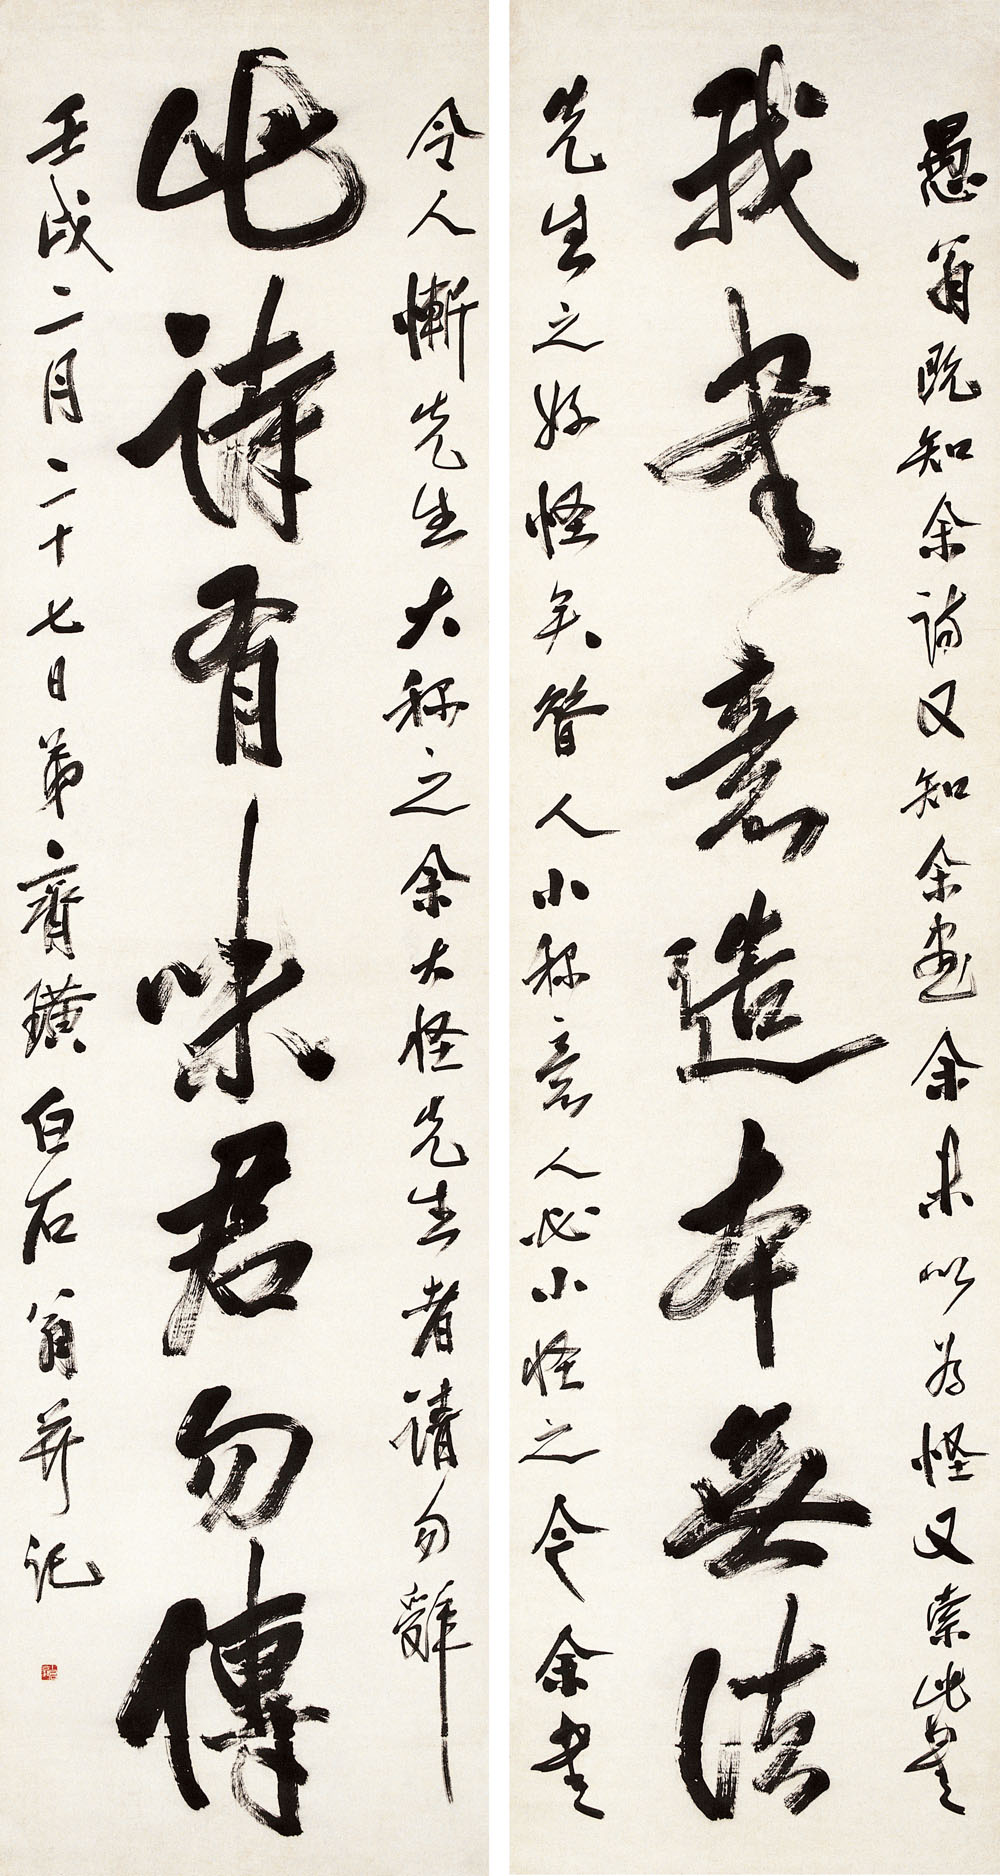 愚翁既知余詩又知余画余未以為怪又索此書
我书意造本無法
先生之好怪矣昔人小称意人必小怪之今余书
令人慚先生大称之余大怪先生者请勿辭
此诗有味君勿傳
壬戌二月二十七日弟齊璜白石翁并记